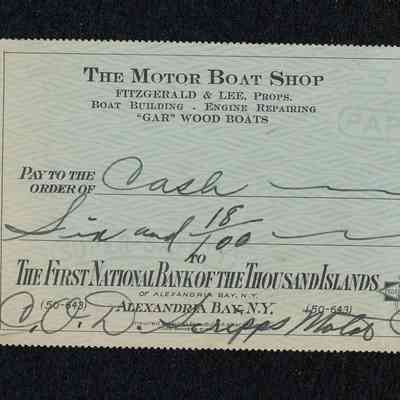 THE MOTOR BOAT SHOP
FITZGERALD & LEE, PROPS.
BOAT BUILDING - ENGINE REPAIRING
"GAR" WOOD BOATS
PAY TO THE
ORDER OF Cash
Six and 18/100
TO
THE FIRST NATIONAL BANK OF THE THOUSAND ISLANDS
OF ALEXANDRIA BAY, N.Y.
(50-643) ALEXANDRIA BAY, N.Y. (50-643)
C.O.D. Scripps Motor